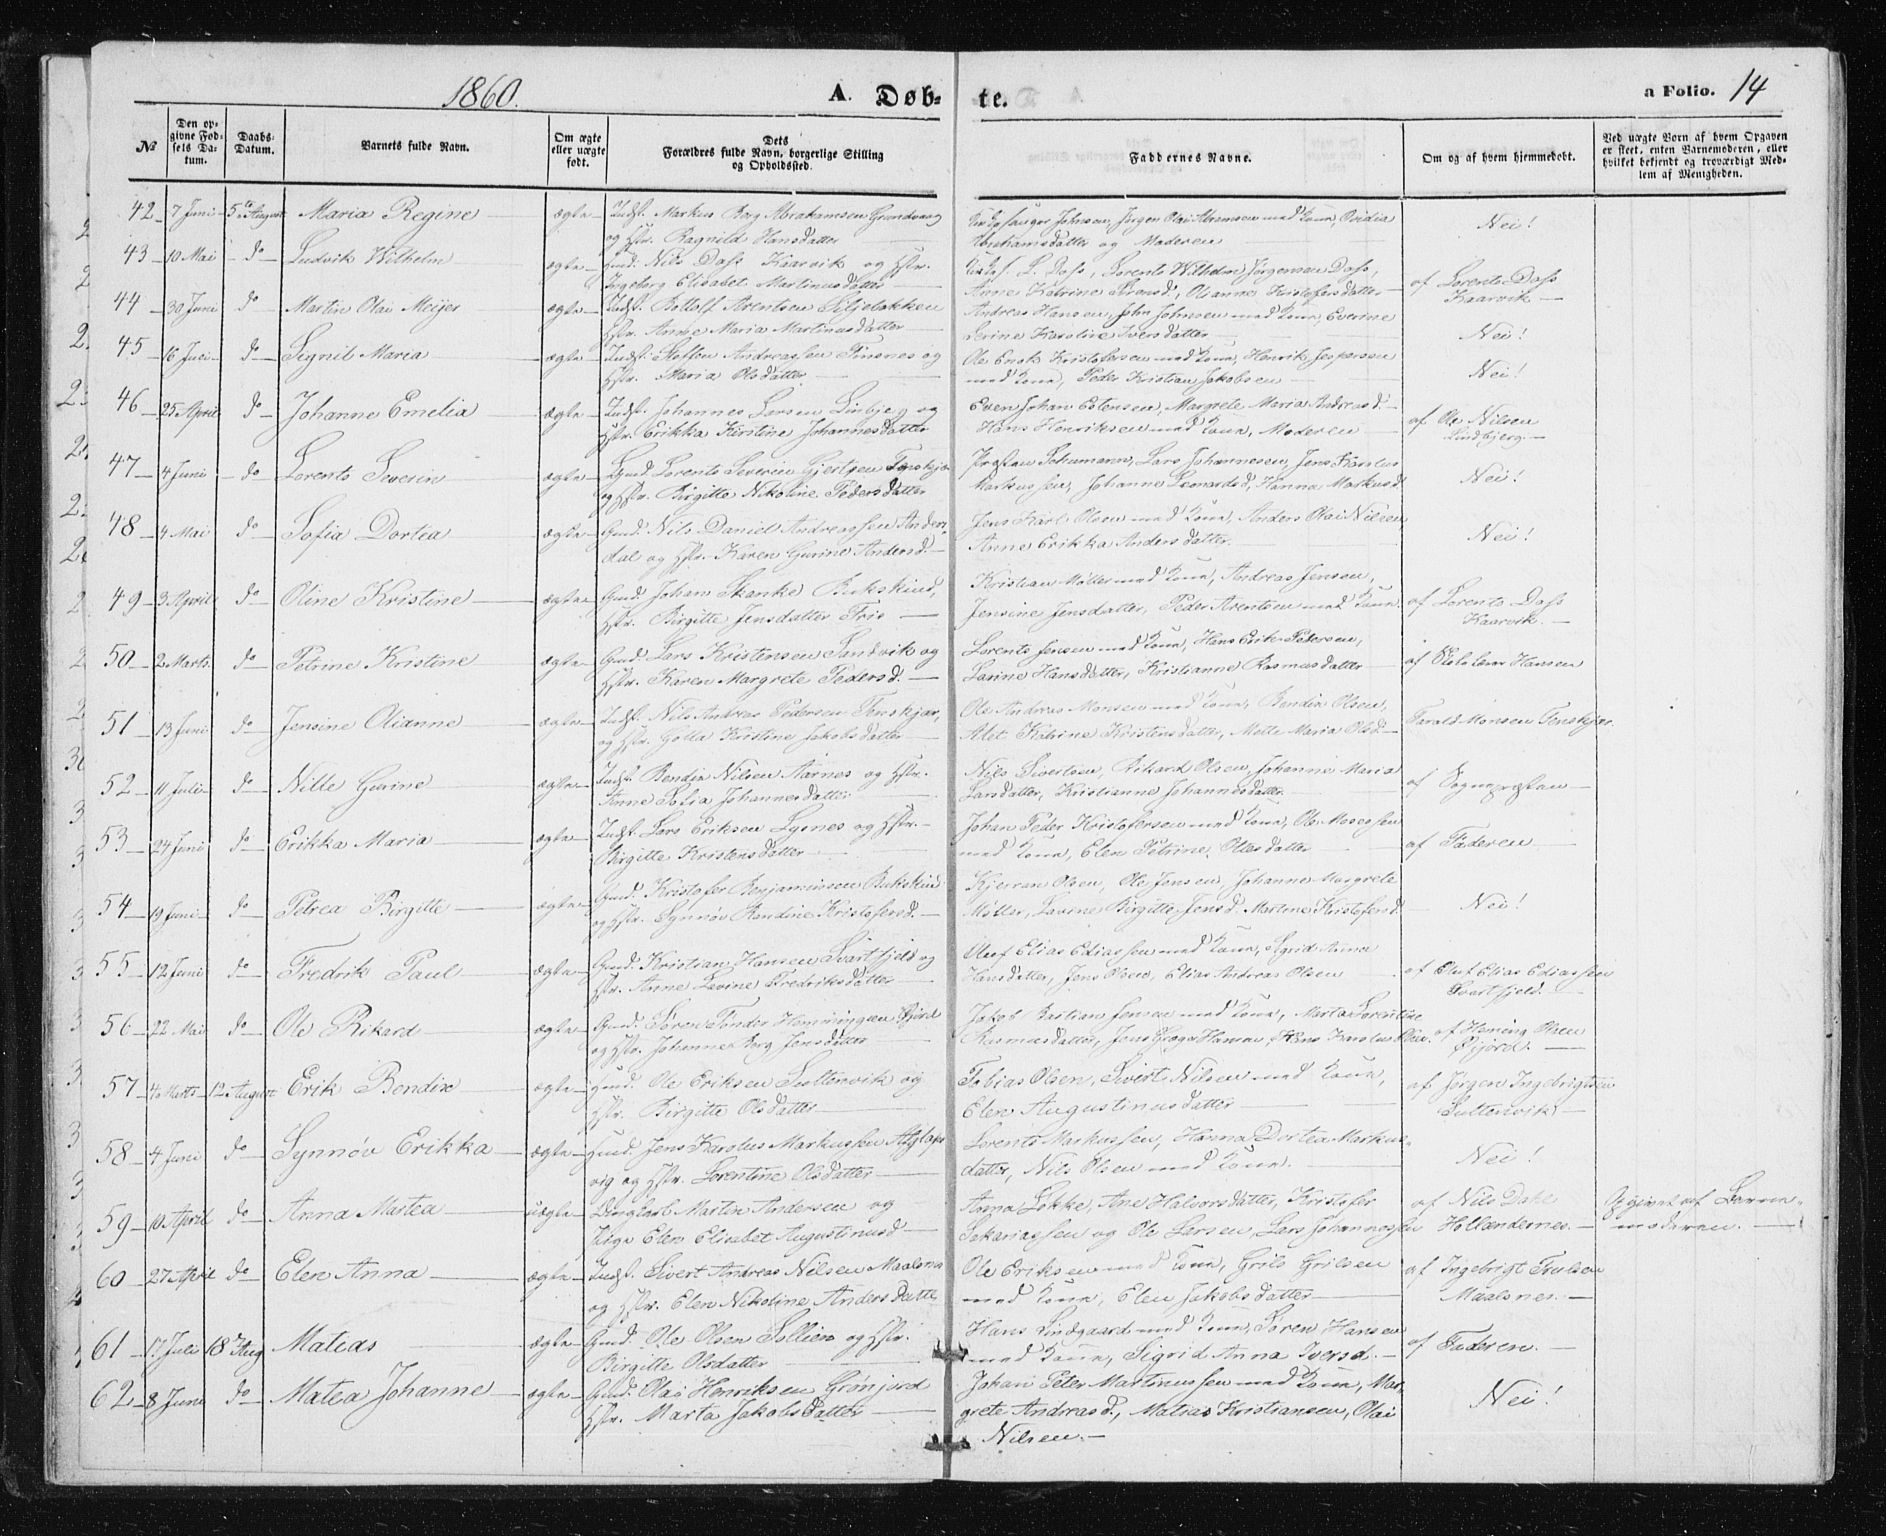 1860.
A. Døbte.
a Folio. 14
№ Den opgivne Fødsels Datum. Daabs Datum. Barnets fulde Navn. Om ægte eller uægte født. Dets Forældres fulde Navn, borgerlige Stilling og Opholdssted. Faddernes Navne. Om og af hvem hjemmedøbt. Ved uægte Børn af hvem Opgaven er skeet, enten Barnemoderen, eller hvilket bekjendt og troværdigt Medlem af Menigheden.
42 7 Juni 5te August Maria Regine ægte Indst. Markus Borg Abrahamsen Grundvaag Jørgen Olai Abramsen med Kone, Ovidia Nei!
og Hstr. Ragnild Hansdatter Abrahamsdatter og Moderen
43 10 Mai do Ludvik Wilhelm ægte Gmd. Nils Dass Kaarvik og Hstr. L. Dass, Lorents Wilhelm Jørgensen Dass, af Lorents Dass
Ingeborg Elisabet Martinusdatter Anne Katrine, Olianne Kristofersdatter Kaarvik
44 30 Juni do Martin Olai Meijer ægte Indst. Bottolf Arentsen Andreas Hansen, John Johnsen med Kone, Everine Nei!
Hstr. Anne Maria Martinusdatter Serine Karoline Iversdatter
45 16 Juli do Signil Maria ægte Indst. Steffen Andreassen Finsnes og Ole Enok Kristofersen med Kone, Henrik Jespersen Nei!
Hstr. Maria Olsdatter med Kone, Peder Kristian Jakobsen
46 25 April do Johanne Emelia ægte Indst. Johannes Larsen og Even Johan Estensen, Margrete Maria Andreasd. af Ole Nilsen
Hstr. Erikka Kirstine Johannesdatter Hans Henriksen med Kone, Moderen Lindbjerg
47 4 Juni do Lorents Severin ægte Gmd. Lorents Severin Gjertsen Præsten Schumann, Lars Johannesen, Jens Karolus Nei!
og Hstr. Birgitte Nikoline Pedersdatter Markussen, Johanne Leonardsd, Hanna Markusd.
48 4 Mai do Sofia Dortea ægte Gmd. Nils Daniel Andreassen Anders- Jens Karl Olsen med Kone, Anders Olai Nilsen Nei!
dal og Hstr. Karen Gurine Andersd. Anne Erikka Andersdatter
49 3 April do Oline Kristine ægte Gmd. Johan Skanke Bukskind, Kristian Møller med Kone, Andreas Jensen, af Lorents Dass
Hstr. Birgitte Jensdatter Friis Jensine Jensdatter, Peder Arentsen med Kone. Kaarvik.
50 2 Marts do Petrine Kristine ægte Gmd. Lars Kristensen Sandvik og Lorents Jensen med Kone, Hans Erik Pedersen, af Hansen
Hstr. Karen Margrete Pedersd. Lavine Hansdatter, Kristianne Rasmusdatter
51 13 Juni do Jensine Olianne ægte Indst. Nils Andreas Pedersen Tenskjær, Ole Andreas Monsen med Kone, Bendix Olsen, Tarald Monsen Tenskjær.
og Hstr. Golla Kristine Jakobsdatter Alet Katrine Kristensdatter, Mette Maria Olsd.
52 11 Juli do Nille Gurine ægte Indst. Bendix Nilsen Aarnes og Hstr. Nils Sivertsen, Rikard Olsen, Johanne Maria af Sognepræsten
Anne Sofia Johannesdatter Larsdatter, Kristianne Johannesdatter
53 24 Juni do Erikka Maria ægte Indst. Lars Eriksen Lysnes og Hstr. Johan Peder Kristofersen med Kone, Ole Mosessen af Faderen
Birgitte Kristensdatter med Kone, Elen Petrine Olsdatter
54 19 Juni do Petrea Birgitte ægte Gmd. Kristofer Benjaminsen Bukskind Kjerran Olsen, Ole Jensen, Johanne Margrete Nei!
og Hstr. Synnøv Bendine Kristofersd. Møller, Lavine Birgitte Jensd. Martine Kristofersd.
55 12 Juni do Fredrik Paul ægte Gmd. Kristian Hansen Svartfjeld og Oluf Elias Ediassen med Kone, Sigrid Anna af Oluf Elias Ediassen
Hstr. Anne Lavine Fredriksdatter Hansdatter, Jens Olsen, Elias Andreas Olsen Svartfjeld.
56 22 Mai do Ole Rikard ægte Gmd. Søren Tønder Hemmingsen Øijord Jakob Bastian Jensen med Kone, Marta Lorentine af Heming Olsen
og Hstr. Johanne Borg Jensdatter Rasmusdatter, Jens Hansen, Karolus Olsen. Øijord.
57 4 Marts 12 August Erik Bendix ægte Gmd. Ole Eriksen Sultenvik og Tobias Olsen, Sivert Nilsen med Kone, af Jørgen Ingebrigtsen
Hstr. Birgitte Olsdatter Elen Augustinusdatter Sultenvik
58 4 Juni do Synnøv Erikka ægte Gmd. Jens Karolus Markussen Aglaps- Lorents Markussen, Hanna Dortea Markus- Nei!
vig og Hstr. Lorentine Olsdatter datter, Nils Olsen med Kone.
59 10 April do Anna Martea uægte Ungkarl Martin Andersen og Anna Løkke, Ane Halvorsdatter, Kristofer af Nils Dahl Opgivet af Barne-
Pige Elen Elisabet Augustinusd Sakariassen og Ole Larsen, Lars Johannessen Hollændernes. moderen.
60 27 April do Elen Anna ægte Indst. Sivert Andreas Nilsen Maalsnes Ole Eriksen med Kone, Grils Grilsen af Ingebrigt Trulsen
og Hstr. Elen Nikoline Andersdatte med Kone, Elen Jakobsdatter Maalsnes.
61 17 Juli 18de Aug Matias ægte Gmd. Ole Olsen Sollien og Hstr. Hans Lindgaard med Kone, Søren Hansen af Faderen.
Birgitte Olsdatter med Kone, Sigrid Anna Iversd.
62 8 Juni do Matea Johanne ægte Gmd. Olai Henriksen Grønjord Johan Peter Martinussen med Kone, Mar- Nei!
Hstr. Marta Jakobsdatter grete Andreasd., Matias Kristiansen, Olai
Nilsen.